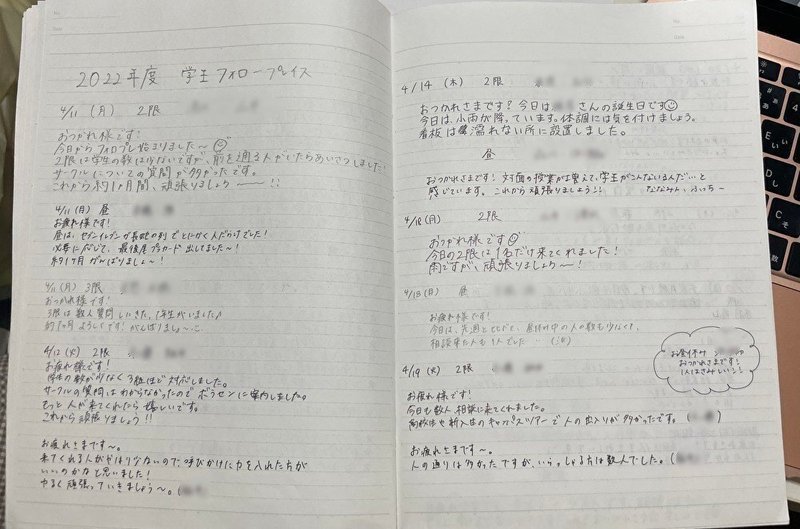 2022年度 学生フォロープレイス
4/11 (月) 2限
おつかれ様です!
今日からフォロプレ始まりました〜
2限は学生の数は少ないですが、前を通る人がいたらあいさつしました!
サークルについての質問が多かったです。
これから約1ヶ月間、頑張りましょう〜!!
4/11 (月) 昼
お疲れ様です!
昼は、セブンイレブンが長蛇の列でとにかく人だらけでした!
必要に応じて、最後尾プラカード出してました〜!
約1ヶ月がんばりましょ〜!
4/11 (月) 3限
おつかれ様です!
3限は数人質問しにきた、1年生がいました♪
約1ヶ月よろしくです! がんばりましょ
4/12 (火) 2限
お疲れ様です!
学生の数が少なく3組程で対応しました。
サークルの質問はわからなかったのでボラセンに案内しました。
もっと人が来てくれたら嬉しいです。
これから頑張りましょう!!
お疲れさまです〜。
来てくれる人がやはり少ないので、呼びかけに力を入れた方が
いいのかなと思いました!
ゆるく頑張っていきましょう〜。(
4/14 (木) 2限
おつかれさまです? 今日は、 さんの誕生日です
今日は、小雨が降っています。体調には気を付けましょう。
看板は濡れない所に設置しました。
昼
おつかれさまです! 対面の授業が増えて、学生がこんないるんだ…と
感じています。これから頑張りましょう!!
4/18 (月) 2限
おつかれ様です
今日の2限は1名だけ来てくれました!
雨ですが、頑張りましょう〜!
4/18 (月) 昼
お疲れ様です!
今日は、先週と比べて、昼休み中の人の数も少なくて、
相談来た人も1人でした…
4/19 (火) 2限
お昼休み
おつかれさまです!
1人はさみしい!!
お疲れ様です!
今日も数人、相談に来てくれました。
高校生や新入生のキャンパスツアーで人の出入りが多かったです。(
お疲れさまです〜。
人の通りは多かったですが、いらっしゃる方は数人でした。(
Q
W
て
E
い